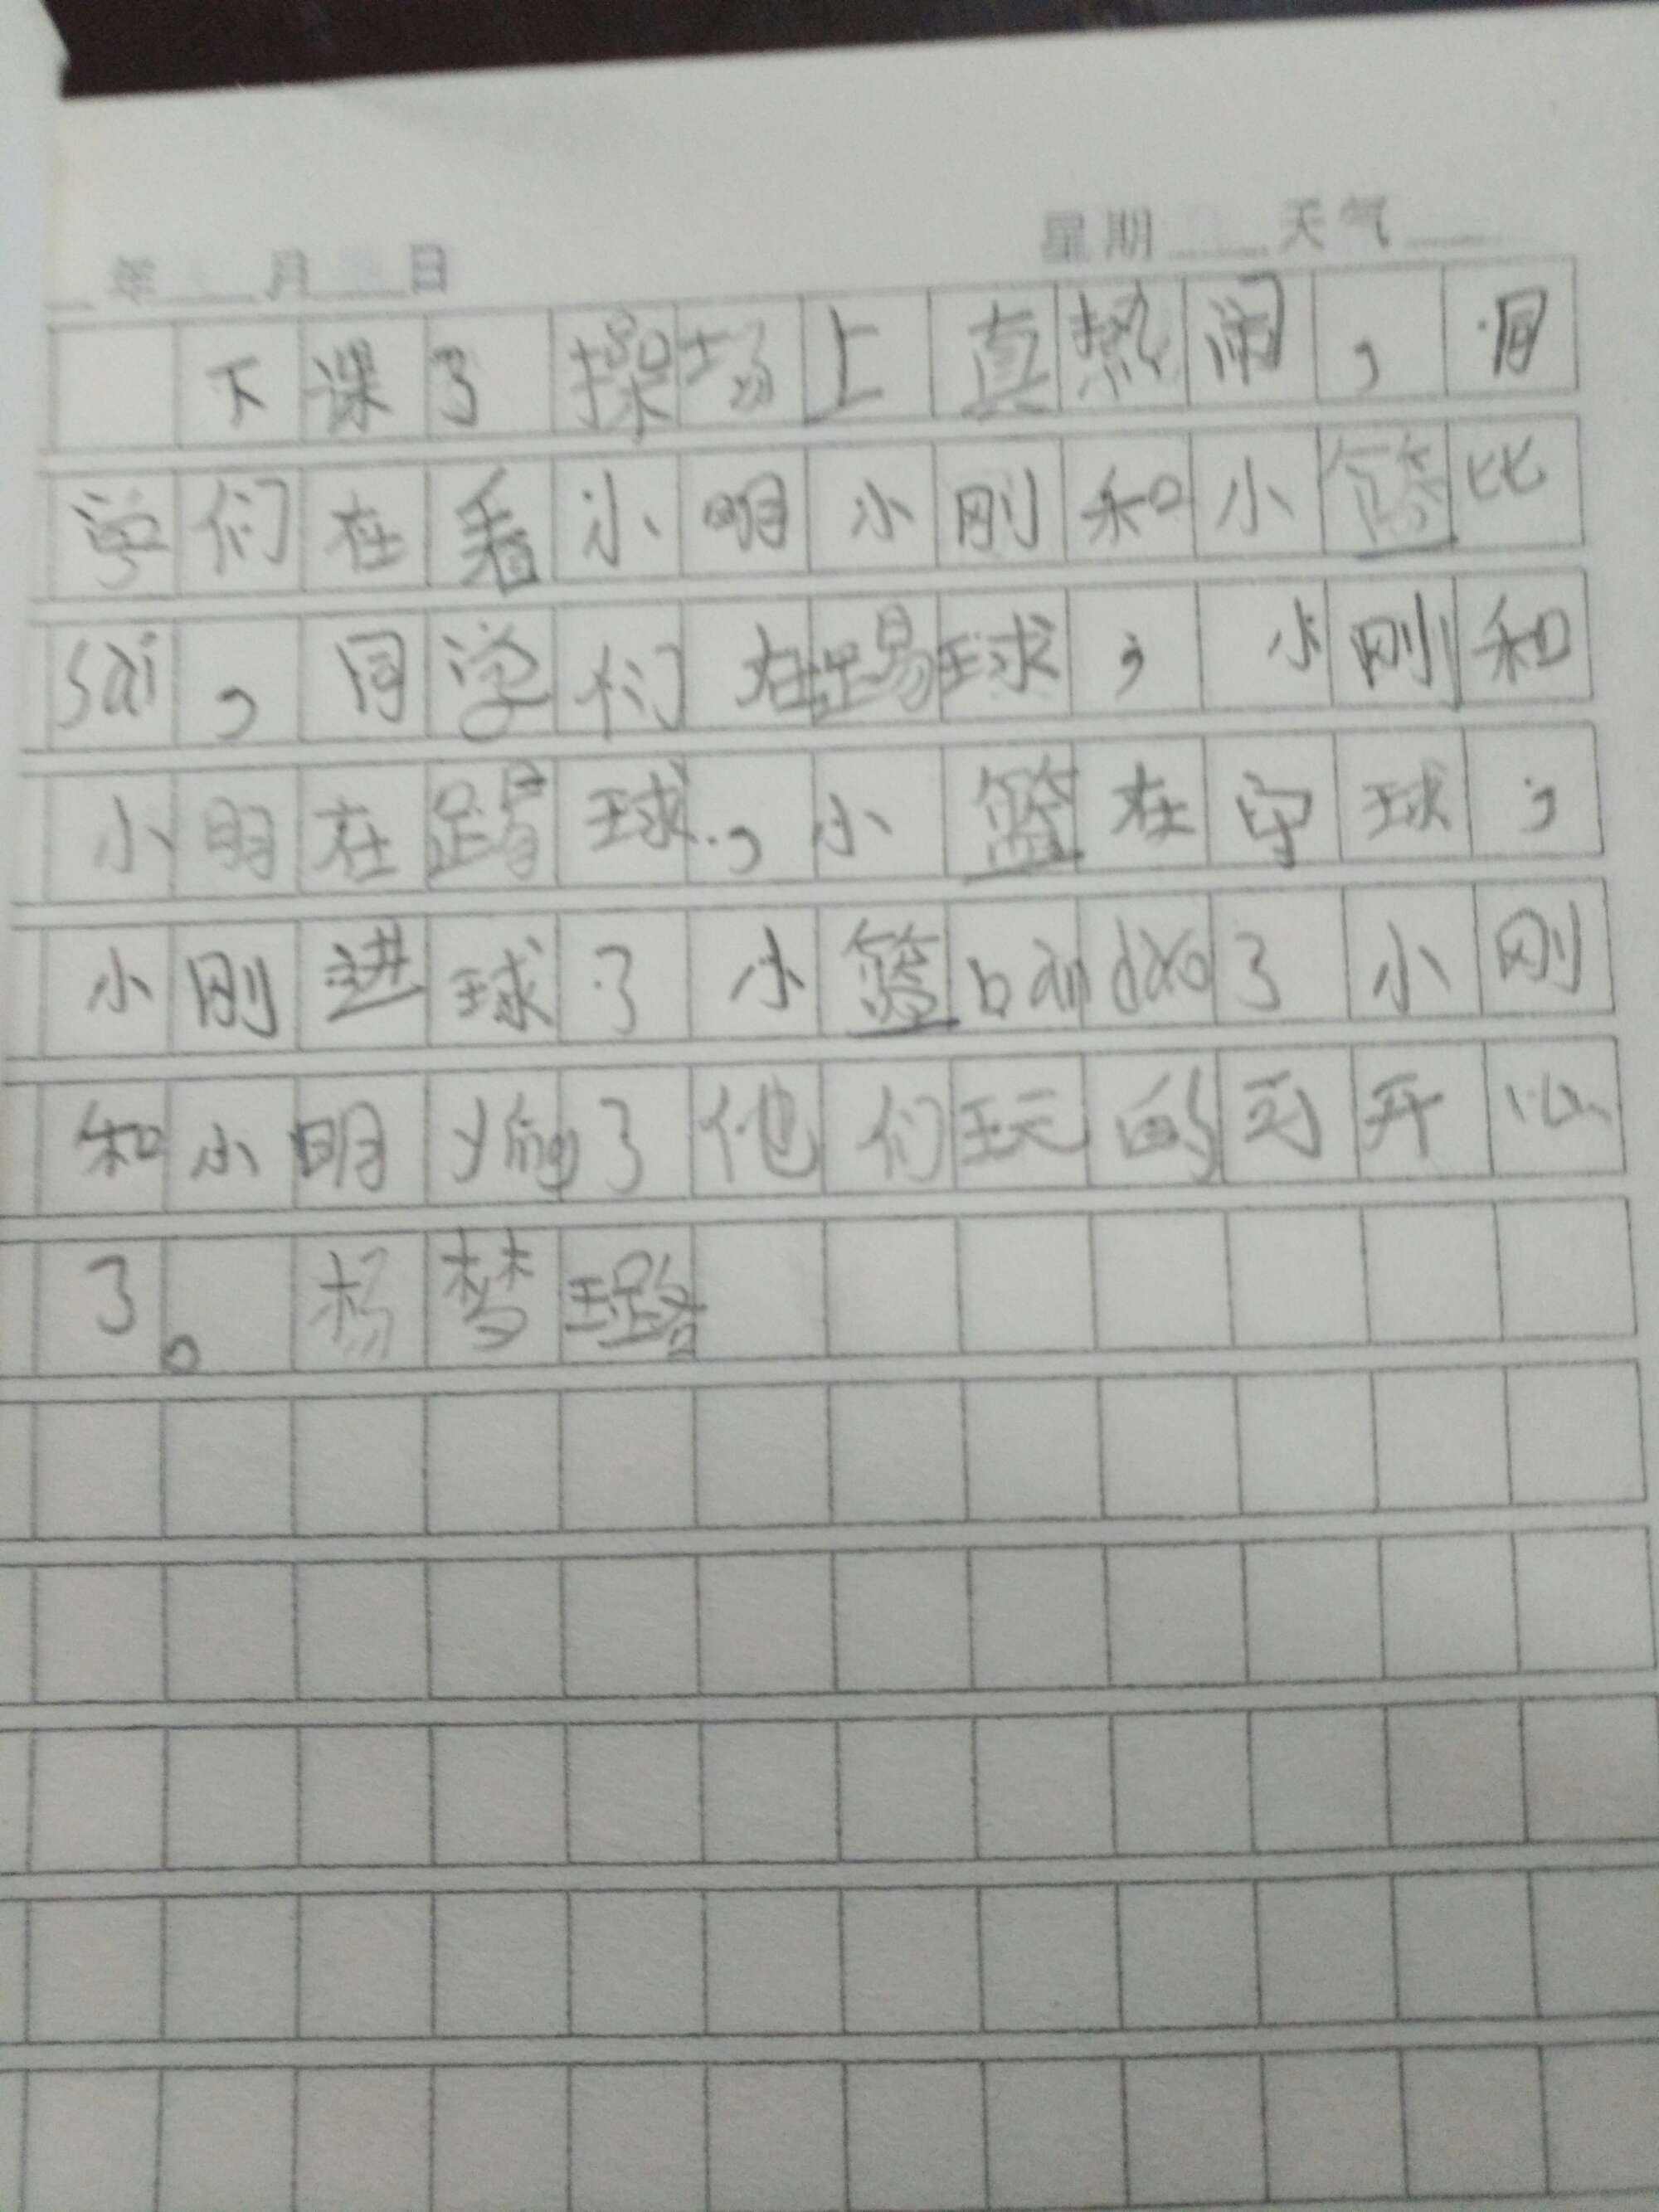 年 月 日 星期 天气
下课了操场上真热闹，同
学们在看小明小刚和小篮比
sai，同学们在踢球，小刚和
小明在踢球，小篮在守球，
小刚进球了小篮bàn dǎo了小刚
和小明yíng了他们玩的可开心
了。 杨梦璐